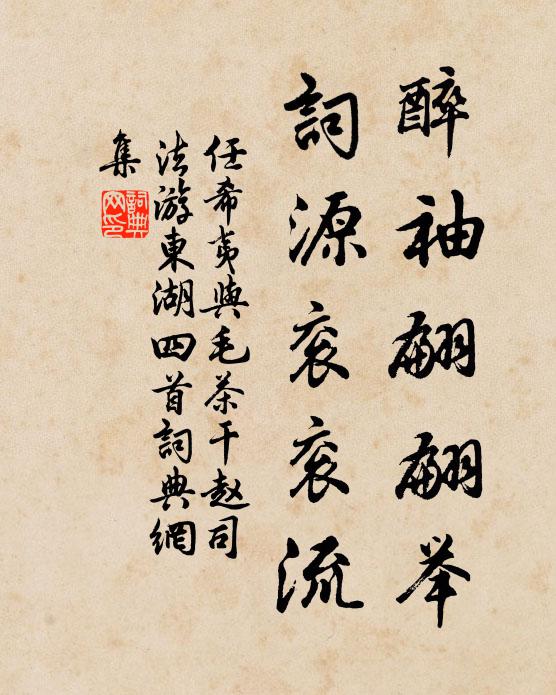 醉袖翩翩举
詞源衮衮流
任希夷與毛茶干赵司
法游東湖四首詞典網
集
詞典網印